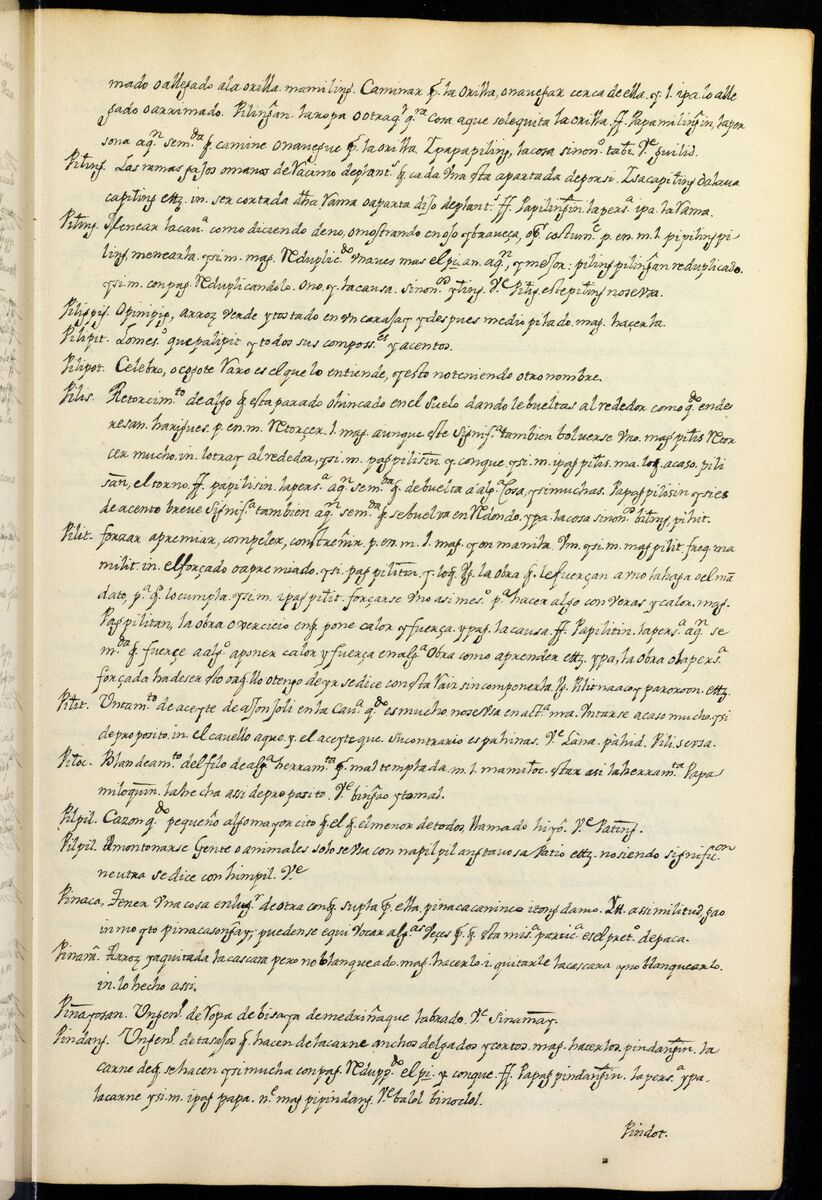 mado o allegado ala orilla. mamiling. Caminar pr. la orilla, o navegar cerca de ella. y. l. ipa. lo alle
gado o arrimado. Pilingan. la ropa o otra qr. qra Cosa a que se le quita la orilla. ff. Papamilingin, la per
sona aqn sem.da q camine o navegue pr. la orilla. Ipapapiling, la cosa sinono. tabi. Ve. guilid.
Piling. Las ramas gajos o manos de Racimo de plants. q cada una esta apartada de por si.
capiling ettz. in. ser cortada dha Rama o aparta dijo de plants. ff. Papilingin la persa. ipa. la Rama.
Piling. Menear la cava. como diciendo de no, o mostrando enojo y braveça, o pr. costume. p. en. m. l. pipiling pi
ling, menearla. y si. m. mag. Reduplicdo. Unaves mas el pi. an. aqn, y mejor: piling pilingan reduplicado.
y si. m. con pag. Reduplicandolo. Ono. y. la causa. sinono. yling. Ve. Piling este piling no se usa.
Pilippig. Opinipig, arroz verde y tostado en un carajay y despues medio pilado. mag. hacerla.
Pilipit. Lo mesmo. que palipit y todos sus composses. y acentos.
Pilipot. Celebro, o cogote Raro es el que lo entiende, y esto no teniendo otro nombre.
Pilis. Retorcimto. de algo q esta parado o hincado en el suelo dandole bueltas al rededor como qdo ende
resan. harigues. p. en. m. Retorçer. l. mag. aunque este signifa. tambien bolverse uno. mag pilis Retor
cer mucho. in. lo tra y al rededor, y si. m. pag pilisin y. con que. y si. m. ipag pilis. ma. lo q. acaso. pili
san, el torno. ff. papilisin. la persa aqn semda q. de buelta a alga. Cosa, y si muchas. Papag pilisin y si es
de acento breve signifa. tambien aqn semda q se buelva en Redondo. y pa. la cosa sinono. biling, pihit.
Pilit. forzar apremiar, compeler, constreñir. p. en. m. l. mag. y on manila. Um. y si. m. mag pilit. freq. ma
milit. in. el forçado o apremiado. y si. pag pilitin y. lo q. Yp. la obra q le fuerçan a uno la haga o el man
dato, pa. q lo cumpla. y si. m. ipag pilit. forçarse uno asi meso. pa. hacer algo con veras y calor. mag.
Pag pilitan, la obra o exercicio en q pone calor y fuerça. y pag. la causa. ff. Papilitin. la persa. aqn se
mda q. fuerçe a algo. aponer calor y fuerça en alga Obra como aprender ettz. y pa, la obra o la persa
forçada ha de ser esto o aquello o tengo de yr se dice con esta Raiz sin componerla. Pg. Pilit naaco y paroroon. ettz.
Pilit. Untamto de aceyte de ajonjoli en la cava. qdo es mucho no se usa en esta ma. Untarse acaso mucho. y si
de proposito. in. el cavello aquo. y. el aceyte que. su contrario es pahinas. Ve. Lana. pahid. Pili. sersa.
Piloc. Blandeamto. del filo de alga herramta q mal templada. m. l. mamiloc. estar asi la herramta. Papa
miloquin. la hecha asi de proposito. Ve. bingao y tomal.
Pilpil. Cazon qdo pequeño algo mayorcito q. el q. el menor de todos, llamado hiyo. Ve. Pating.
Pilpil. Amontonarse Gente o animales solo se usa con napilpil ang tavo sa Patio ettz. no siendo significon
neutra se dice con himpil. Ve
Pinaca, Tener una cosa en lugr. de otra con q supla pr. ella. pinacacanin co itong damo. It. a similitud, gao
in mo yto pinacasongay; puedense equivocar algas veçes pr. q esta misa. partica. es el preto. de paca.
Pinava. Arroz ya quitada la cascara pero no blanqueado. mag. hacerlo. i. quitarle la cascara y no blanquearlo.
in. lo hecho assi.
Pinayosan. Un genl. de Ropa de bisaya de medriñaque labrado. Ve. Sinamay.
Pindang. Un genl. de tasajos q hacen de la carne anchos delgados y cortos. mag. hacerlos pindangin. la
carne de q se hacen y si mucha con pag Reduppdo el pi. y con que. ff. Papag pindangin. la persa. y pa.
la carne y si. m. ipag papa. ne. mag pipindang. Ve. balol binoclol.
Pindot.